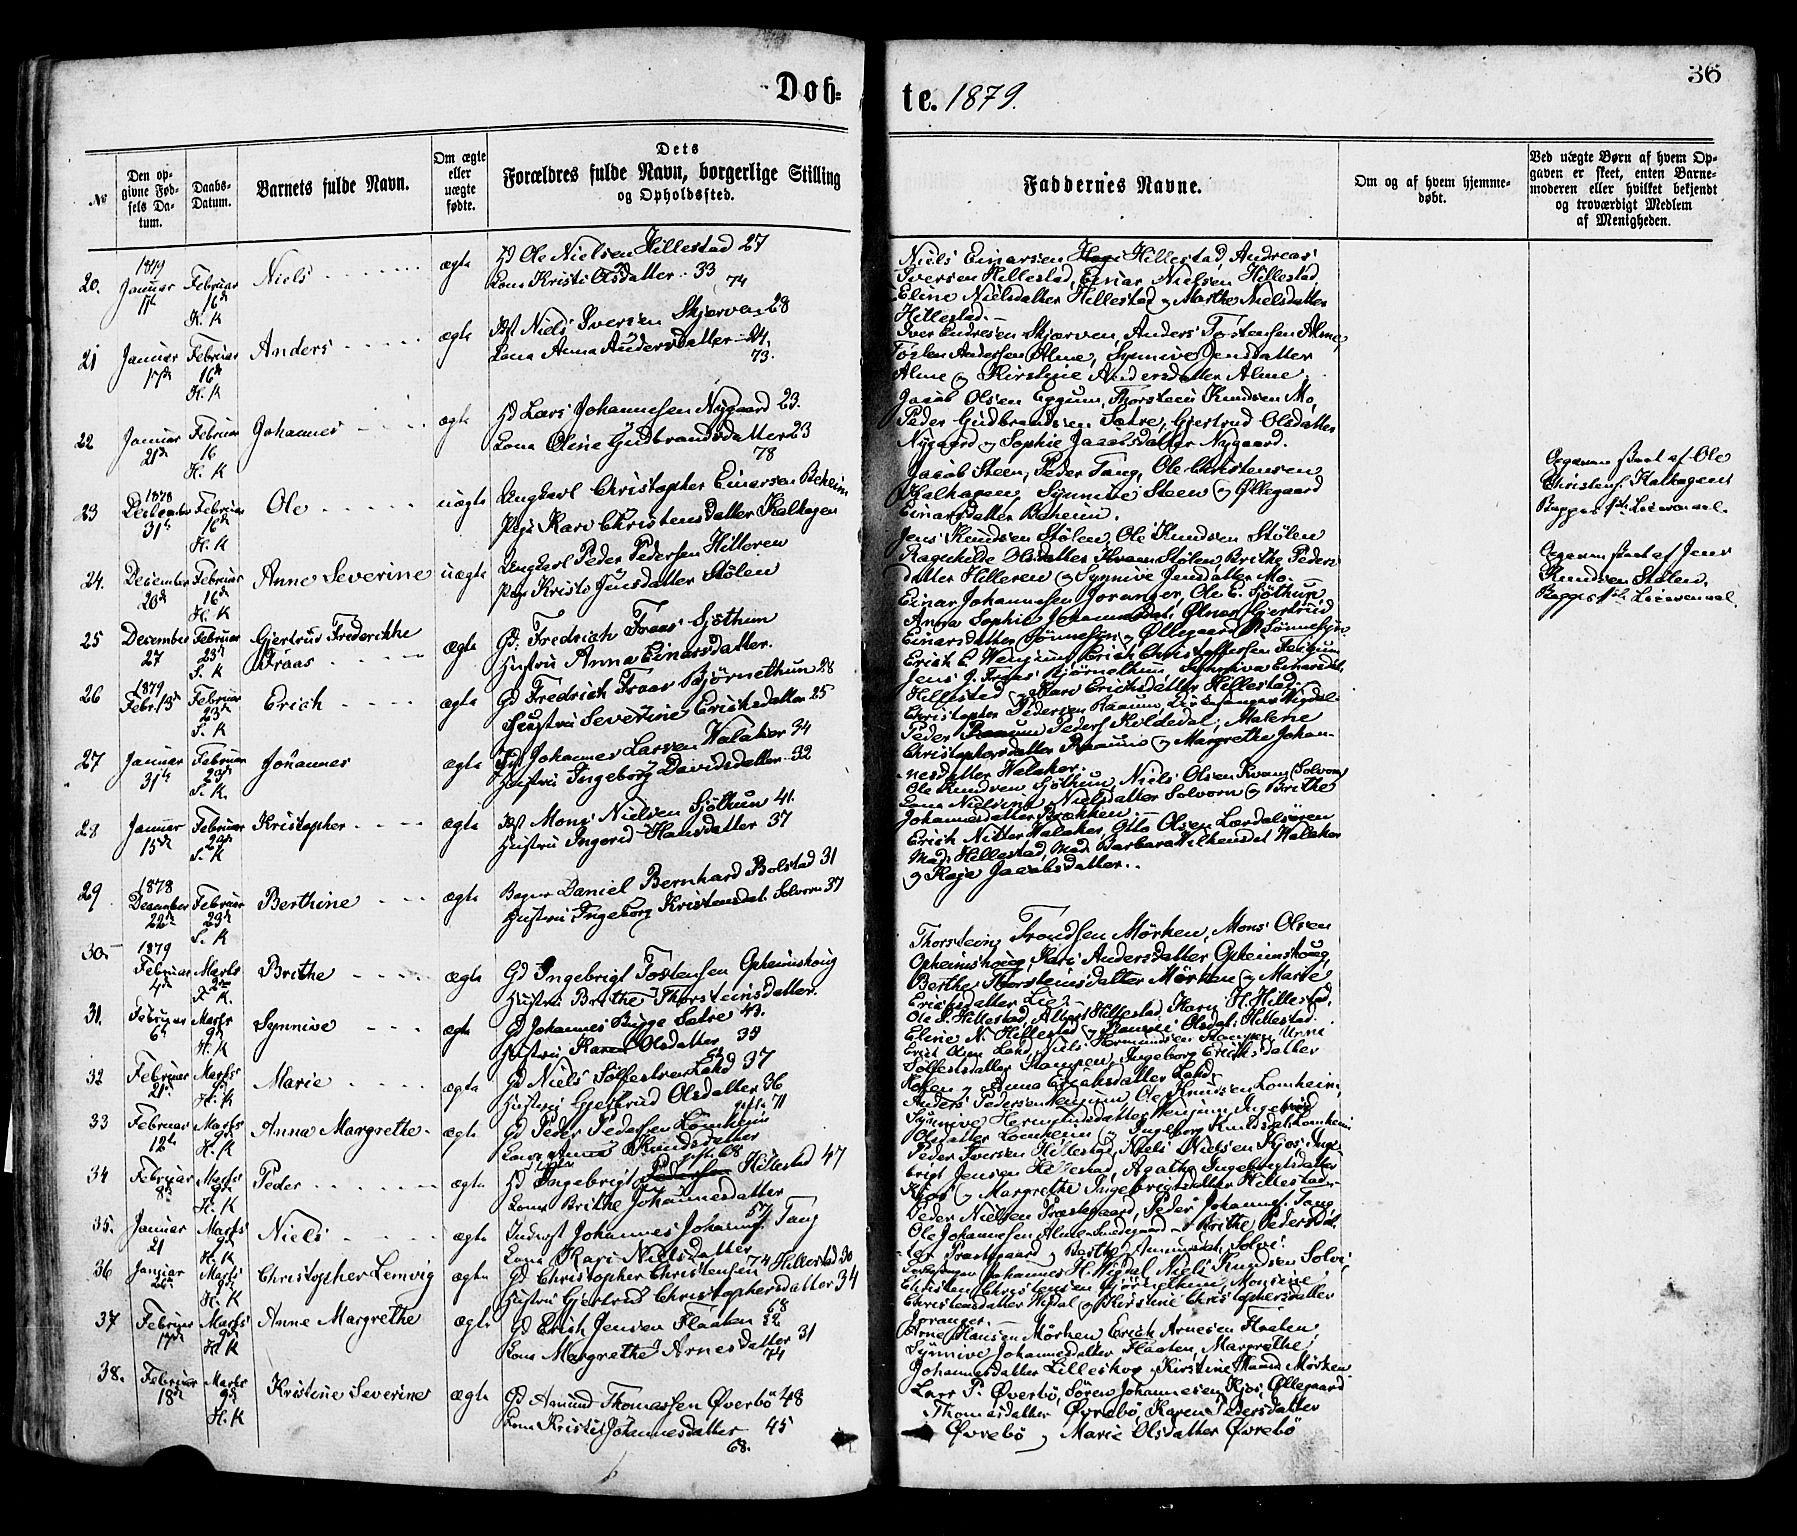 Døb-
te. 1879.
36
No
Den opgivne Fødsels Datum.
Daabs-Datum.
Barnets fulde Navn.
Om ægte eller uægte fødte.
Dets Forældres fulde Navn, borgerlige Stilling og Opholdssted.
Faddernes Navne.
Om og af hvem hjemmedøbt.
Ved uægte Børn af hvem Opgaven er skeet, enten Barnemoderen eller hvilket bekjendt og troværdigt Medlem af Menigheden.
20. 1879 Januar Februar 16de H. K Niels ægte Gd Ole Nielsen Hillestad 27
Kona Kristi Olsdatter 33
74
Niels Einarsen Hillestad, Andreas
Iversen Hillestad, Einar Nielsen Hillestad,
Eline Nielsdatter Hillestad og Marthe Nielsdatter
Hillestad.
21 Januar 17de Februar 16de H. K Anders ægte Niels Iversen Skjerven 28
Kona Anna Andersdatter 24
73.
Iver Endresen Skjerven, Anders Tostensen Alme,
Tosten Andersen Alme, Synnive Jensdatter
Alme og Kirstine Andersdatter Alme.
22 Januar 21de Februar 16 H. K Johannes ægte Gd Lars Johannesen Nygaard 23.
Kona Oline Gudbrandsdatter 23
78
Jacob Olsen Eggum, Thorstein Knudsen Mo,
Peder Gudbrandsen Sætre, Gjertrud Olsdatter
Nygaard og Sophie Jacobsdatter Nygaard.
23 1878 December 31te Februar 16de H. K Ole uægte Ungkarl Christopher Einarsen Beheim
Pige Kari Christensdatter Kalhagen
Jacob Steen, Peder Tang, Ole Christensen
Kalhagen, Synnive Steen og Øllegaard
Einarsdatter Beheim.
Opgaven skeet af Ole
Christens. Kalhagens
24. December 20de Februar 16de H. K Anne Severine uægte Ungkarl Peder Pedersen Hilleren
Pige Kristi Jensdatter Stølen
Jens Knudsen Stølen, Ole Knudsen Stølen
Ragnhilde Olsdatter Stølen, Brithe Peders
datter Hilleren og Synnive Jensdatter Mo.
Opgaven skeet af Jens
Knudsen Stølen.
25 December 27 Februar 23de S. K Gjertrud Frederikke
Fraas ægte Gd: Fredrich Fraas Sjøthun
Hustru Anna Einarsdatter.
Einar Johannesen Joranger, Ole E. Sjøthun,
Anna Sophie Johannesdat.
Einarsdatter Sønnesyn og Øllegaard Sønnesyn
26 1879 Febr. 13de Februar 23de S. K Erich ægte Gd Fredrich Fraas Bjørnethun 28
Hustru Severine Erichsdatter 25
Erich E. Venjum, Erich Christophersen Venjum
Jens J. Fraas Bjørnethun, Synneva Einarsdat.
Hillestad og Kari Erichsdatter Hillestad.
27 Januar 31te Februar 23de S. K. Johannes ægte Gd Johannes Larsen Walaker 34
Hustru Ingeborg Davidsdatter 32
Christopher Pedersen Raaum,
Peder Peders. Kvildedal, Malene
Christophersdatter Raaum og Margrethe Johan-
nesdatter Walaker.
28 Januar 15de Februar 23de S. K Kristopher ægte Mons Nielsen Sjøthun 41.
Hustru Ingerid Hansdatter 37
Ole Knudsen Sjøthun, Niels Olsen Kvam Solvorn,
Nielsdatter Solvorn og Brithe
Johannesdatter Brekken.
29 1878 December 22de Februar 23de S. K Berthine ægte Bager Daniel Bernhard Bolstad 31
Hustru Ingeborg Kristensdat. Solvorn 37
Erich Nitter Walaker, Otto Olsen Lærdalsøren
Mad. Hillestad, Mad. Barbara Vilhelmsdat. Walaker
og Kaje Jacobsdatter.
30. 1879 Februar 4de Marts 2den F K. Brithe ægte Gd Ingebrigt Tostensen Opheimshoug
Hustru Brithe Thorsteinsdatter.
Thorstein Trondsen Mørken, Mons Olsen
Opheimshoug, Kari Andersdatter Opheimshoug,
Berthe Thorsteinsdatter Mørken og Marie
Erichsdatter Lie.
31. Februar 6te Marts 9de H. K Synnive ægte Gd Johannes Bugge Sætre 43.
Hustru Karen Olsdatter 35
Ole S. Hillestad, Albert Hillestad, Karn H. Hillestad,
Eline N. Hillestad og Olsdat. Hillestad.
32 Februar 21de Marts 9de H. K Marie ægte Gd Niels Solfestsen Lahd 37
Hustru Gjertrud Olsdatter 36
Erich Olsen Lahd, Niels Hermundsen
Solfestsdatter Stampen, Ingeborg Erichsdatter
og Anna Erichsdatter Lahd.
33 Februar 12te Marts 9de H. K Anna Margrethe ægte Gd Peder Pedersen Lomheim
Kona Anna Knudsdatter
gift 71
Anders Pedersen Venjum, Ole Knudsen Lomheim,
Synneve Hermundsdatter Venjum, Ingebrig
Olsdatter Lomheim og Ingeborg Knudsdat. Lomheim
34 Februar 8de Marts 9de H. K Peder ægte Gd Ingebrigt Hillestad 47
Kona Brithe Johannesdatter
gift 68
Peder Iversen Hillestad, Niels Nielsen Kjos, Inge
brigt Jensen Hillestad, Agathe Ingebrigtsdatter
Kjos og Margrethe Ingebrigtsdatter Hillestad.
35. Januar 21 Marts 9de H. K Niels ægte Inderst Johannes Johannes. Tang
Kona Kari Nielsdatter
74
Peder Nielsen Præstegaard, Peder Johannes. Tang
Ole Johannesen Alme Sandegaard, Brithe Pedersdat.
Præstgaard og Berthe Amundsdat. Solvi.
36 Januar Marts 9de H. K Christopher Lemvig ægte Gd Christopher Christensen Hillestad 30
Hustru Gjertrud Christophersdatter 34
68
Johannes H. Wigdal, Niels Knudsen Solvi,
Christen Christensen Bjørnethun, Monsine
Christensdatter Wigdal og Kirstine Christophersdatter
Joranger.
37 Februar 17de Marts 9de H K Anne Margrethe ægte Gd Erich Jensen Flaaten 32
Kona Margrethe Arnesdatter 31
74
Arne Hansen Mørken, Erich Arnesen Flaaten,
Synnive Johannesdatter Flaaten, Margrethe
Johannesdatter Lilleskog, Kirstine Mørken
38. Februar 18de Marts 9de H. K Kristine Severine ægte Gd Amund Thomassen Øverbø 48
Kona Kristi Johannesdatter 45
68.
Lars P. Øverbø, Søren Johannesen Kjos, Øllegaard
Thomasdatter Øvrebø, Karen Pedersdatter
Øvrebø og Marie Olsdatter Øvrebø